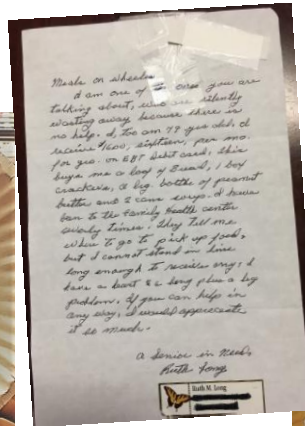 Meals on wheels
I am one of the ones you are
talking about, who are silently
wasting away because there is
no help. I, too am 79 yrs old, I
receive $16.00, sixteen, per mo.
for gro. on EBT debit card, this
buys me a loaf of bread, 1 box
crackers, a big bottle of peanut
butter and 2 cans soups. I have
been to the Family Health center
several times. They tell me
where to go to pick up food,
but I cannot stand in line
long enough to receive any; I
have a heart & lung plus a leg
problem. If you can help in
any way, I would appreciate
it so much.
a Senior in Need,
Ruth Long
Ruth M. Long